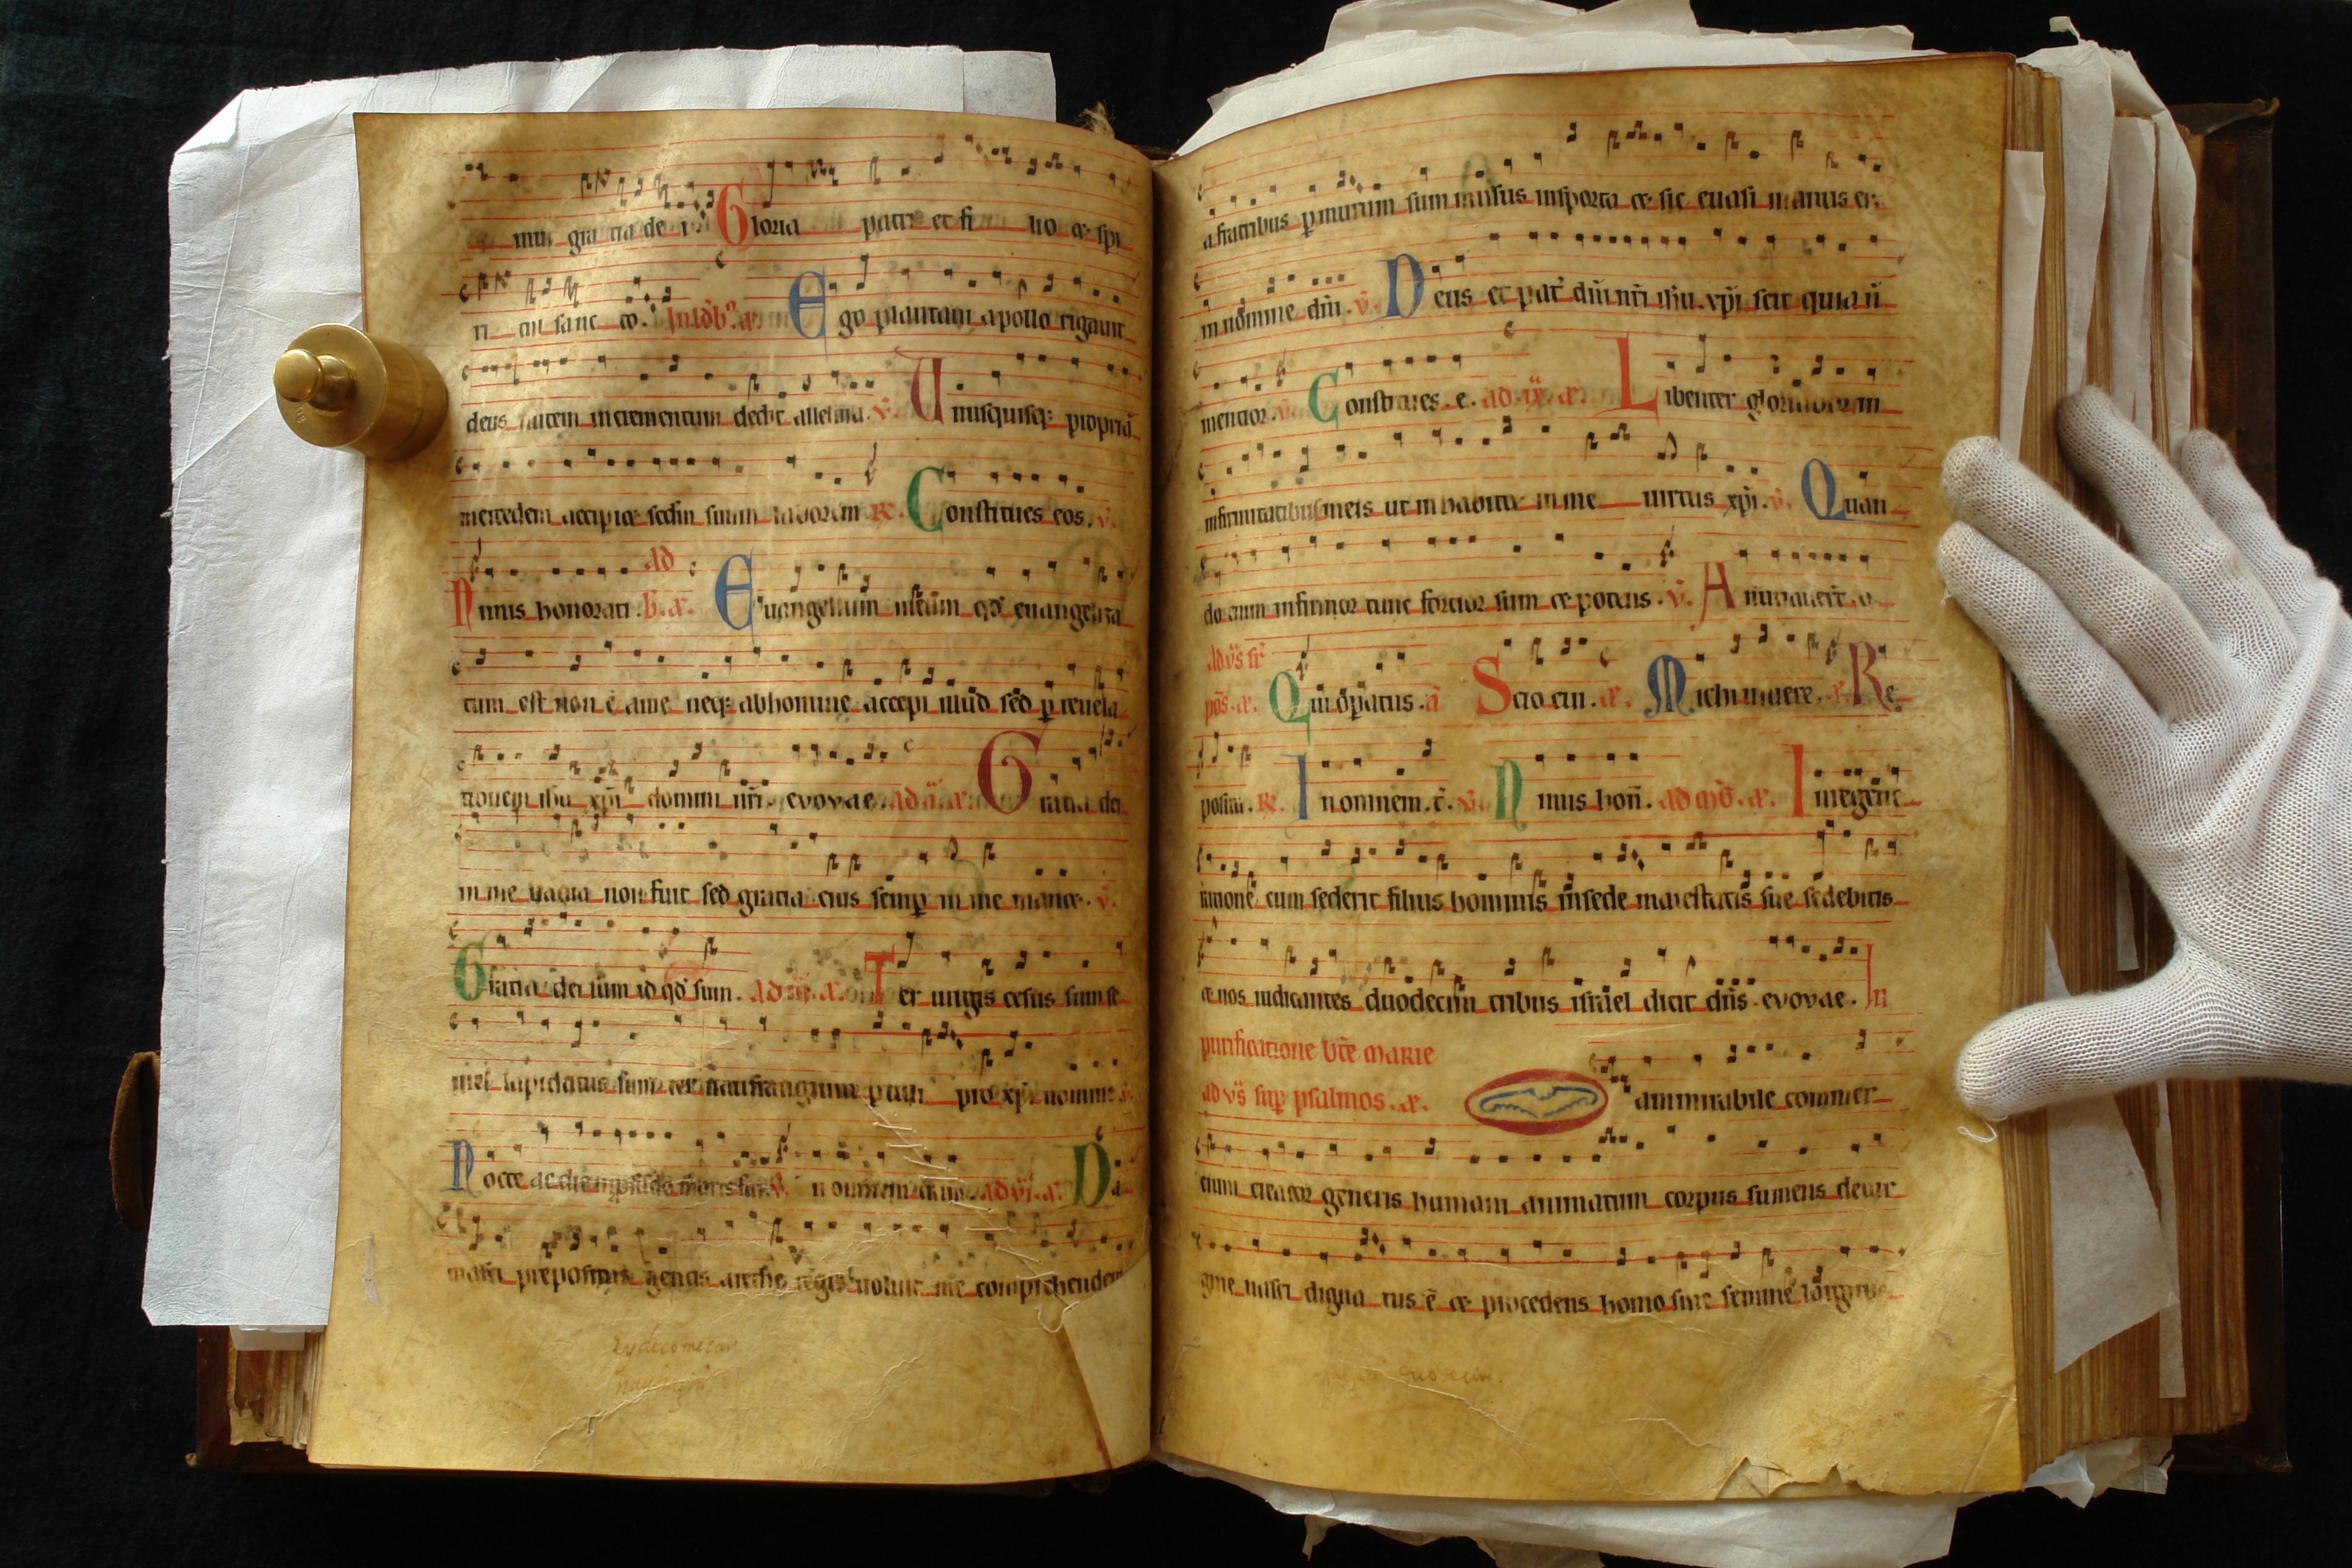 mus gra tia de i Gloria patri et fi lio et spi
ri tui sanc to. In ldb? a. Ego plantaui apollo rigauit
deus autem incrementum dedit alleluia. v. Unusquisq; propriā
mercedem accipiet sedm suum laborem R. Constitues eos. v.
Nimis honorati. ad b. a. Euangelium usēūm qd euangeliza
tum est non ē a me neq; ab homine accepi illud sed p reuela
tionem ihu xpi domini nri. evovae. ad ii. a. Gratia dei
in me uacua non fuit sed gratia eius semp in me manet. v.
Gratia dei sum id qd sum. ad iii. a. Ter uirgis cesus sum se
mel lapidatus sum ter naufragium ptuli pro xpi nomine v.
Nocte ac die in pfundo maris fui. v. In omnem terram. ad vi. a. Da
masci prepositus gentis arethe regis uoluit me comprehendere
a fratribus p murum sum missus in sporta et sic euasi manus ei:
in nomine dni. v. Deus et pat dni nri ihu xpi scit quia n
mentior. v. Constitues. e. ad ix. a. Libenter gloriabor in
infirmitatibus meis ut inhabitet in me uirtus xpi. v. Quan
do enim infirmor tunc fortior sum et potens. v. Annuntiauert. o.
ad vs sr
pos. a. Qui opatus. a Scio cui. a. Michi uiuere. a. Re
posita. R. In omnem. t. v. Nimis hon. ad mg. a. In regene
ratione cum sederit filius hominis in sede maiestatis sue sedebitis
et uos iudicantes duodecim tribus israel dicit dns. evovae. In
purificatione bte marie
ad vs sup psalmos. a. O ammirabile commer
cium creator generis humani animatum corpus sumens de uir
gine nasci digna tus ē et procedens homo sine semine largitus